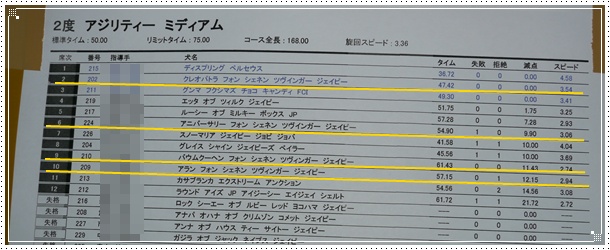 2度 アジリティー ミディアム
標準タイム : 50.00 リミットタイム : 75.00 コース全長 : 168.00 旋回スピード : 3.36
席次 番号 指導手 犬名 タイム 失敗 拒絶 減点 スピード
1 215 ディスプリング ペルセウス 36.72 0 0 0.00 4.58
2 202 クレオパトラ フォン シェネン ツヴィンガー ジェイピー 47.42 0 0 0.00 3.54
3 211 グンマ フクシマズ チョコ キャンディ FCI 49.30 0 0 0.00 3.41
4 219 エッタ オブ ツィルク ジェイピー 51.75 0 0 1.75 3.25
5 217 ルーシー オブ ミルキー ボックス JP 57.28 0 0 7.28 2.93
6 224 アニバーサリー フォン シェネン ツヴィンガー ジェイピー 54.90 1 0 9.90 3.06
7 226 スノーマリア ジェイピー ジョピ ジョバ 41.58 1 1 10.00 4.04
8 204 グレイス シャイン ジェイピーズ ベイラー 45.56 1 1 10.00 3.69
9 210 バウムクーヘン フォン シェネン ツヴィンガー ジェイピー 61.43 0 0 11.43 2.74
10 209 アラン フォン シェネン ツヴィンガー ジェイピー 57.15 0 1 12.15 2.94
11 213 カサブランカ エクストリーム アンクション 54.56 0 2 14.56 3.08
12 212 ラウンド アイズ JP アイジーエス エイジェイ シェルト 61.72 1 1 21.72 2.72
失格 216 ロック シーエー オブ ルビー レッド ヨコハマ ジェイピー
失格 222 アナバ オハナ オブ クリムソン コメット ジェイピー
失格 207 アンナ オブ ハウス ティー サイトー ジェイピー
失格 221 ガジラ オブ ジャック ネイブズ ジェイピー